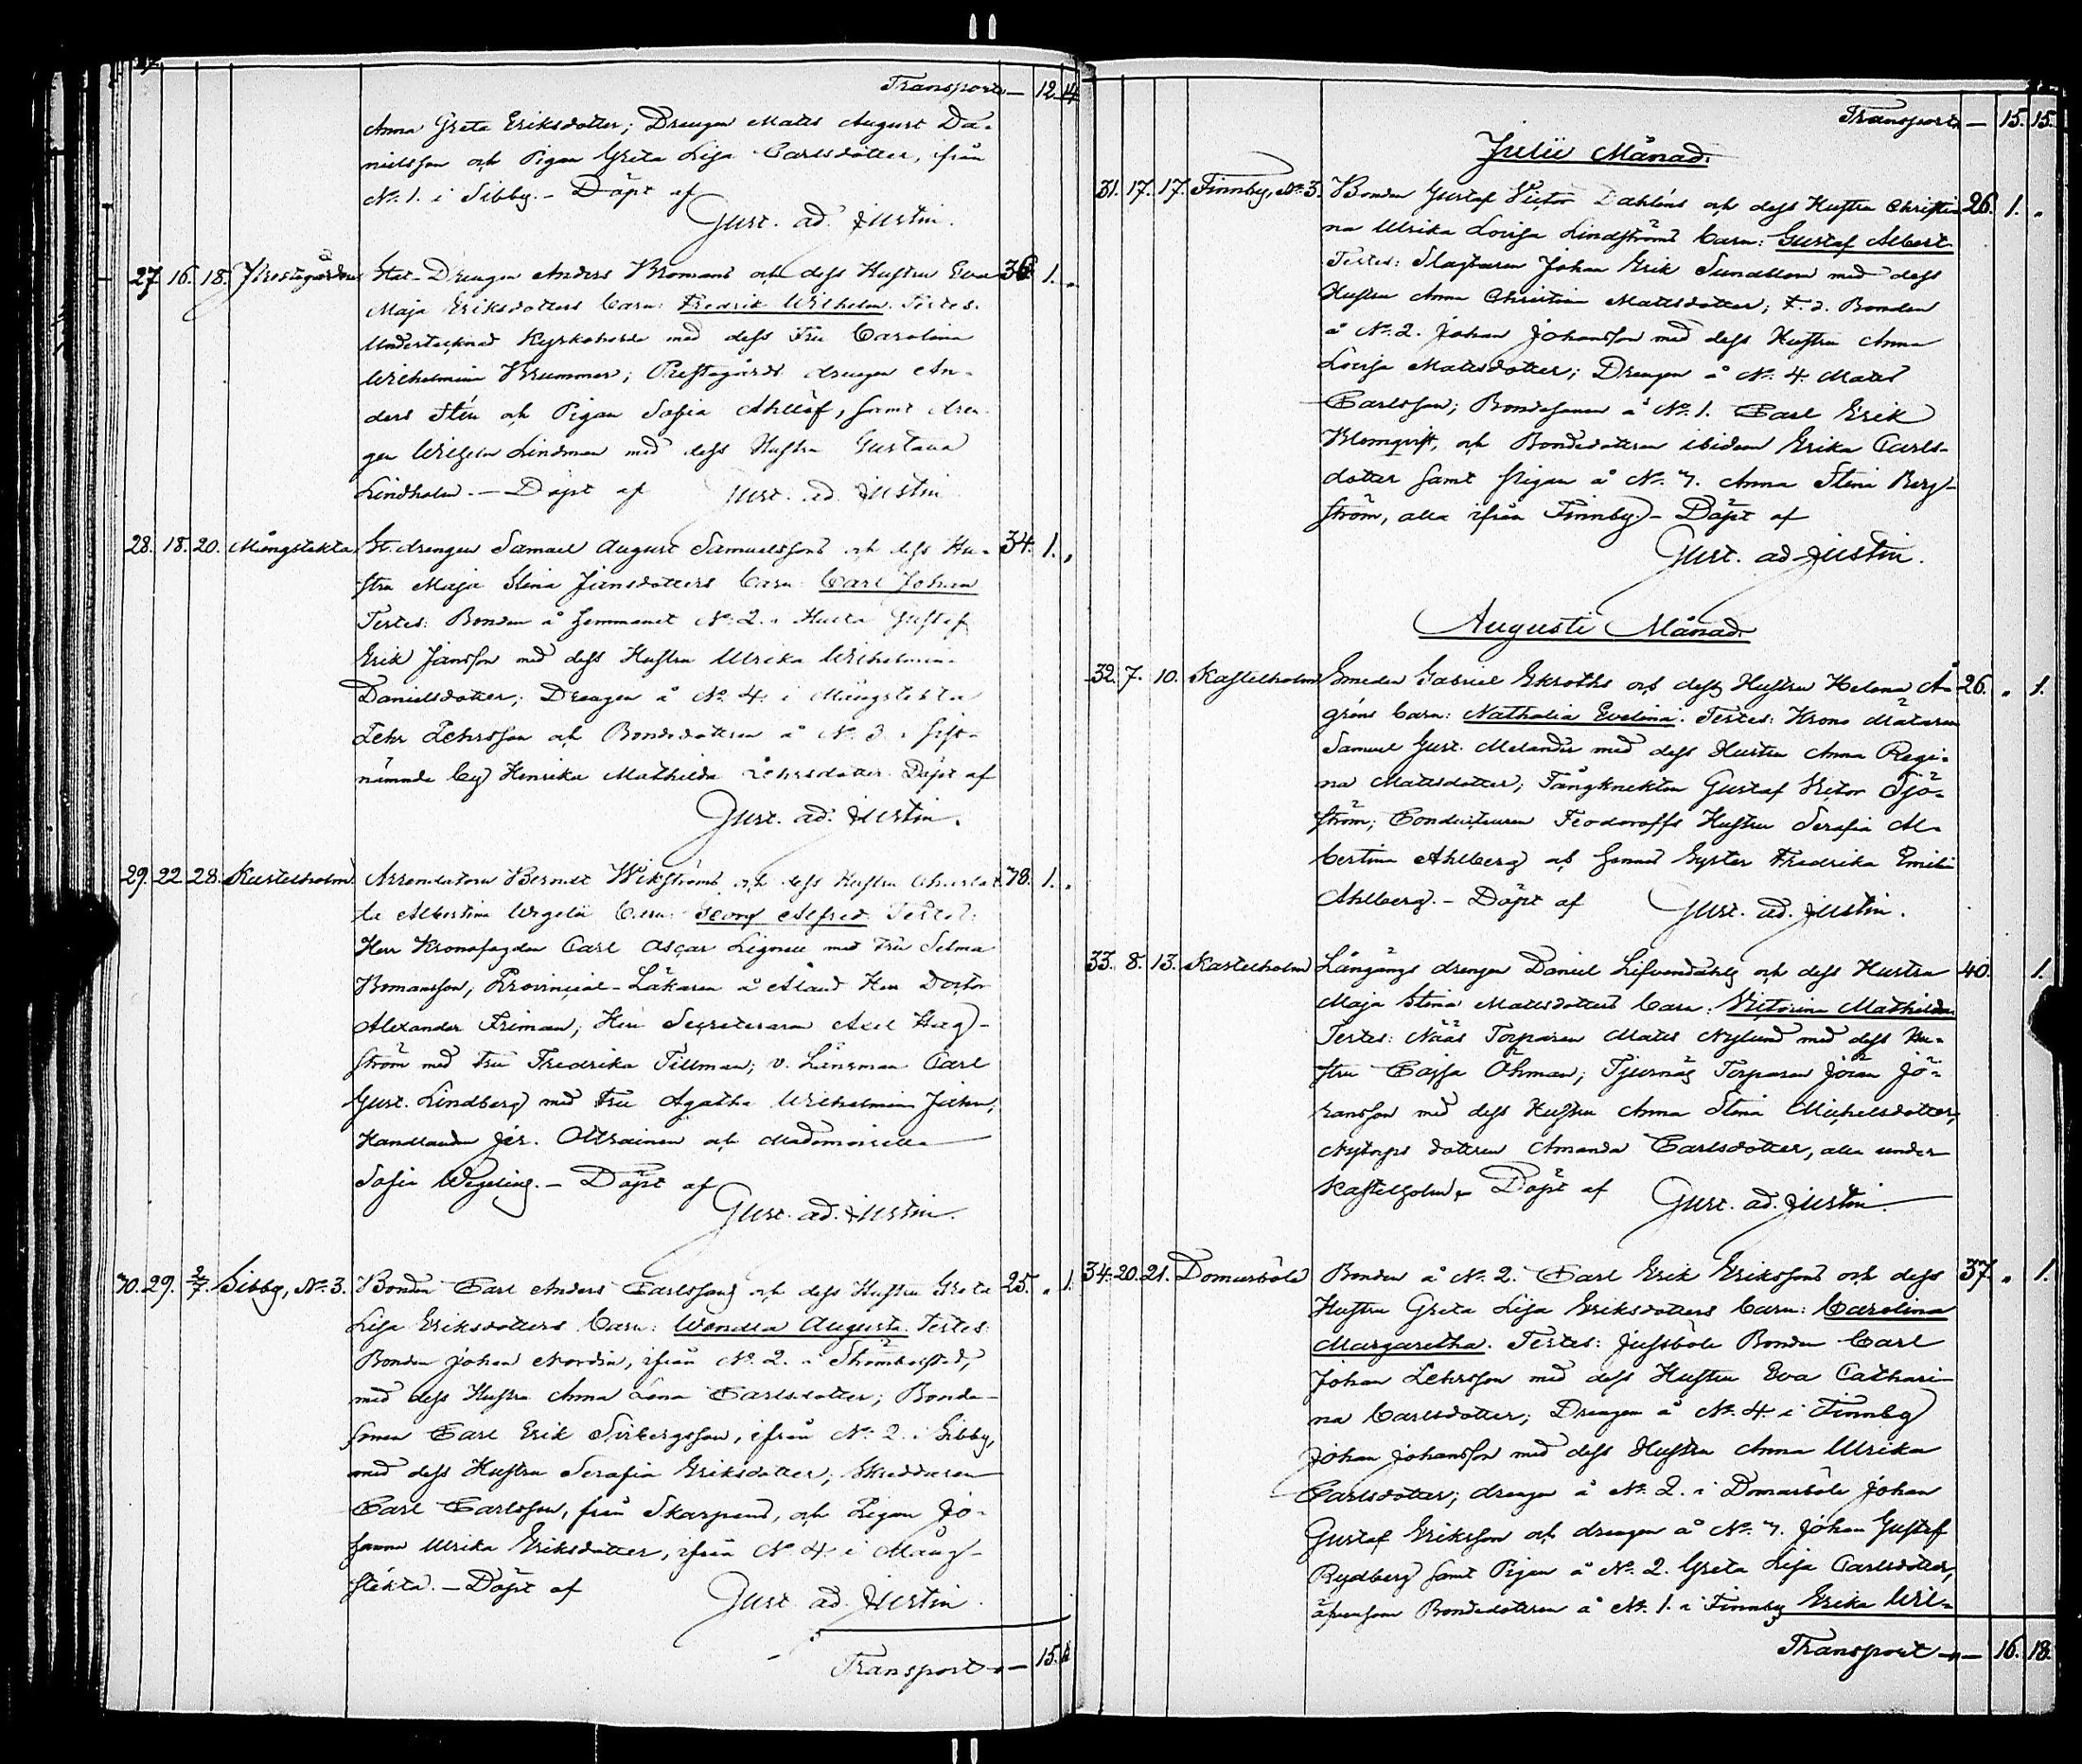 Transport — 12. 14
Anna Greta Eriksdotter; Drengen Matts August Da-
nielsson och Pigan Greta Lisa Carlsdotter, ifrån
No. 1. i Sibby. — Döpt af
Gust. ad. Justin.
27. 16. 18. Prestgården Stat-Drengen Anders Bromans och dess Hustru Eva 36 1. "
Maja Eriksdotters barn: Fredrik Wilhelm. Testes:
Undertecknad Kyrkoherde med dess Fru Carolina
Wilhelmina Brummer; Prestgårds drengen An-
ders Stén och Pigan Sofia Ahllöf, samt dren-
gen Wilhelm Lindman med dess Hustru Gustava
Lindholm. — Döpt af Gust. ad. Justin
28. 18. 20. Mångstekta St. drengen Samuel August Samuelssons och dess Hu- 34. 1. "
stru Maja Stina Jansdotters barn: Carl Johan
Testes: Bonden å hemmanet No. 2. i Gustaf
Erik Jansson med dess Hustru Ulrika Wilhelmina
Danielsdotter; Drengen å No. 4. i Mångstekta
Lehr Lehrsson och Bondedottren å No. 3. i sist-
nämnde by Henrika Mathilda Lehrsdotter. Döpt af
Gust. ad. Justin.
29. 22. 28. Kastelholm. Arrendatorn Berndt Wikströms och dess Hustru Charlot- 78. 1. "
ta Albertina barn: Georg Alfred. Testes:
Herr Kronofogden Carl Oscar Lignell med Fru Selma
Bomansson, Provincial-Läkaren å Åland Herr Doctor
Alexander Friman; Herr Secreteraren Axel Hag-
ström med Fru Fredrika Tillman; v. Länsman Carl
Gust. Lindberg med Fru Agatha Wilhelmina
Handlanden och Mademoiselle
Sofia Wegelius. — Döpt af
Gust. ad. Justin.
30. 29. 2/7. Sibby, No. 3. Bonden Carl Anders Carlssons och dess Hustru Greta 25. " 1.
Lisa Eriksdotters barn: Wendla Augusta. Testes:
Bonden Johan Nordin, ifrån No. 2. i
med dess Hustru Anna Lena Carlsdotter; Bonde-
sonen Carl Erik ifrån No. 2. i Sibby,
med dess Hustru Serafia Eriksdotter; Skreddaren
Carl Carlsson, från Skarpans, och Pigan Jo-
hanna Ulrika Eriksdotter, ifrån No. 4. i Mång-
stekta. — Döpt af Gust. ad. Justin.
Transport — 15.
Transport — 15. 15.
Julii Månad.
31. 17. 17. Finnby, No. 3. Bonden Gustaf Victor Dahléns och dess Hustru Christi- 26. 1. "
na Ulrika Lovisa Lindströms barn: Gustaf Albert
Testes: Slagtaren Johan Erik Sundblom med dess
Hustru Anna Christina Mattsdotter; F. d. Bonden
å No. 2. Johan Johansson med dess Hustru Anna
Lovisa Mattsdotter; Drengen å No. 4. Matts
Carlsson; Bondesonen å No. 1. Carl Erik
Blomqvist, och Bondedottren ibidem Erika Carls-
dotter samt Pigan å No. 7. Anna Stina Berg-
ström, alla ifrån Finnby. — Döpt af
Gust. ad. Justin.
Augusti Månad.
32. 7. 10. Kastelholm Smeden Gabriel Ekroths och dess Hustru Helena Å- 26. " 1.
gréns barn: Nathalia Evelina. Testes: Krono Mätaren
Samuel Gust. Melander med dess Hustru Anna Regi-
na Mattsdotter; Fångknekten Gustaf Victor Sjö-
ström; Conducteuren Feodoroffs Hustru Serafia Al-
bertina Ahlberg och hennes Syster Fredrika Emilia
Ahlberg. — Döpt af Gust. ad. Justin.
33. 8. 13. Kastelholm Långängs drengen Daniel Lifvendahls och dess Hustru 40. 1.
Maja Stina Mattsdotters barn: Victorina Mathilda
Testes: Nääs Torparen Matts Nylund med dess Hu-
stru Cajsa Öhman; Tjurnäs Torparen Jöran Jö-
ransson med dess Hustru Anna Stina Michelsdotter,
Nytorps dottren Amanda Carlsdotter, alla under
Kastelholm. Döpt af Gust. ad. Justin.
34. 20. 21. Domarböle Bonden å No. 2. Carl Erik Erikssons och dess 37. " 1.
Hustru Greta Lisa Eriksdotters barn: Carolina
Margaretha. Testes: Jussböle Bonden Carl
Johan Lehrsson med dess Hustru Eva Cathari-
na Carlsdotter; Drengen å No. 4. i Finnby
Johan Johansson med dess Hustru Anna Ulrika
Carlsdotter; drengen å No. 2. i Domarböle Johan
Gustaf Eriksson och drengen å No. 7. Johan Gustaf
Rydberg samt Pigan å No. 2. Greta Lisa Carlsdotter,
äfvensom Bondedottren å No. 1. i Finnby Erika Wil-
Transport — 16. 18.